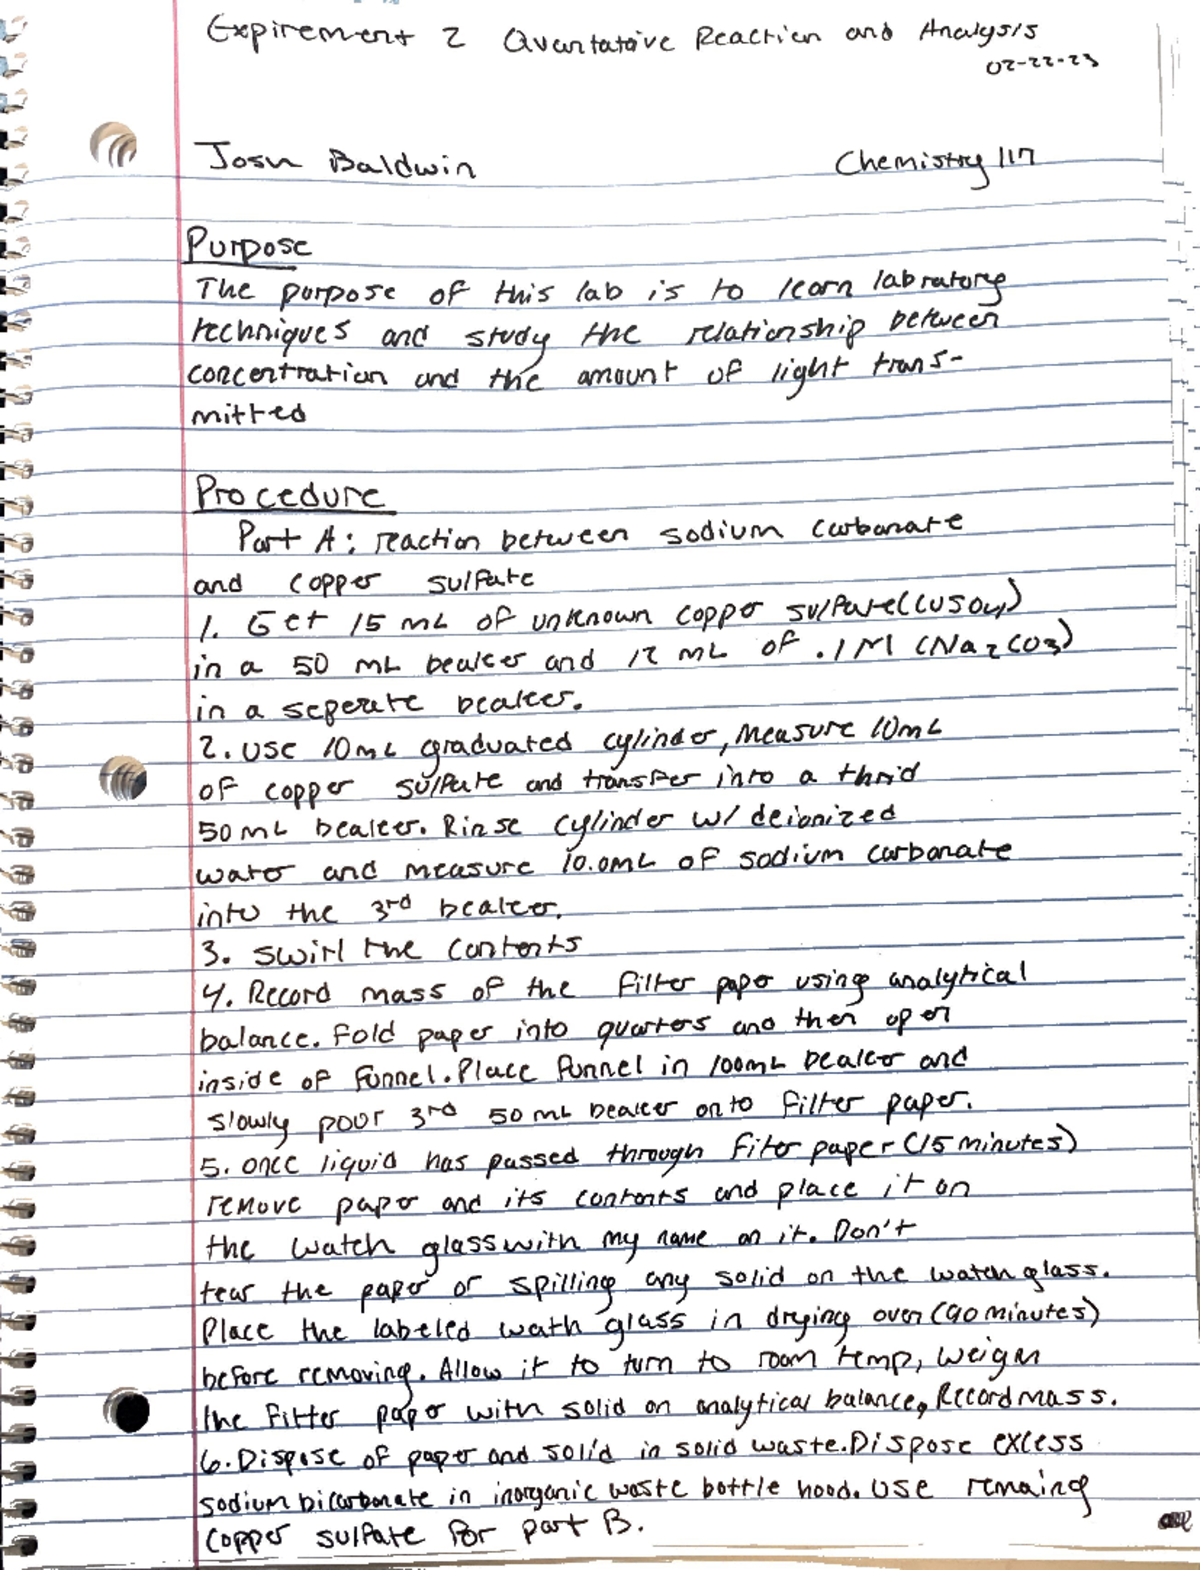 Expirement 2 Quantatative Reaction and Analysis
02-22-23
Josh Baldwin Chemistry 117
Purpose
The purpose of this lab is to learn labratory
techniques and study the relationship between
concentration and the amount of light trans-
mitted
Procedure
Part A: reaction between sodium carbonate
and copper sulfate
1. Get 15 mL of unknown copper sulfate (CuSO4)
in a 50 mL beaker and 12 mL of .1M (Na2CO3)
in a seperate beaker.
2. Use 10mL graduated cylinder, measure 10mL
of copper sulfate and transfer into a thrid
50mL beaker. Rinse cylinder w/ deionized
water and measure 10.0mL of sodium carbonate
into the 3rd beaker.
3. Swirl the contents
4. Record mass of the filter paper using analytical
balance. Fold paper into quarters and then open
inside of funnel. Place funnel in 100mL beaker and
slowly pour 3rd 50mL beaker onto filter paper.
5. once liquid has passed through filter paper (15 minutes)
remove paper and its contents and place it on
the watch glass with my name on it. Don't
tear the paper or spilling any solid on the watch glass.
Place the labeled wath glass in drying oven (90 minutes)
before removing. Allow it to turn to room temp, weigh
the filter paper with solid on analytical balance, Record mass.
6. Dispose of paper and solid in solid waste. Dispose excess
sodium bicarbonate in inorganic waste bottle hood. Use remaing
copper sulfate for part B.